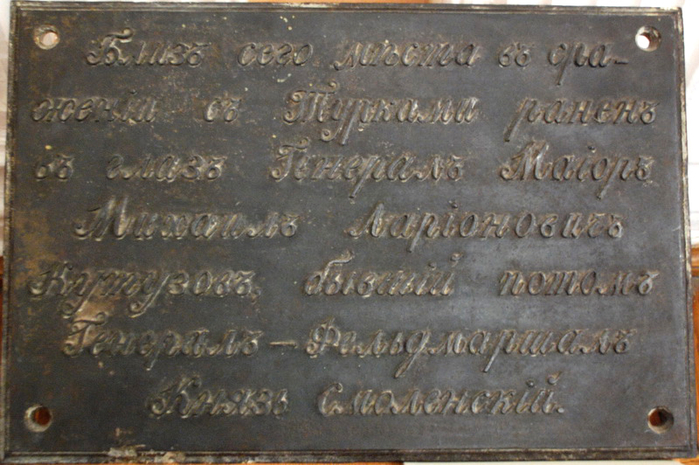 Близъ сего мѣста въ сра-
женіи съ Турками раненъ
въ глазъ Генералъ Маіоръ
Михаилъ Ларіоновичъ
Кутузовъ, бывшій потомъ
Генералъ – Фельдмаршалъ
Князь Смоленскій.